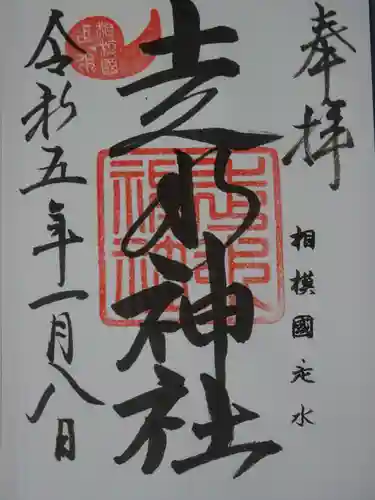 奉拝
相模國走水
走水神社
令和五年一月八日
相模國
走水
走水神社